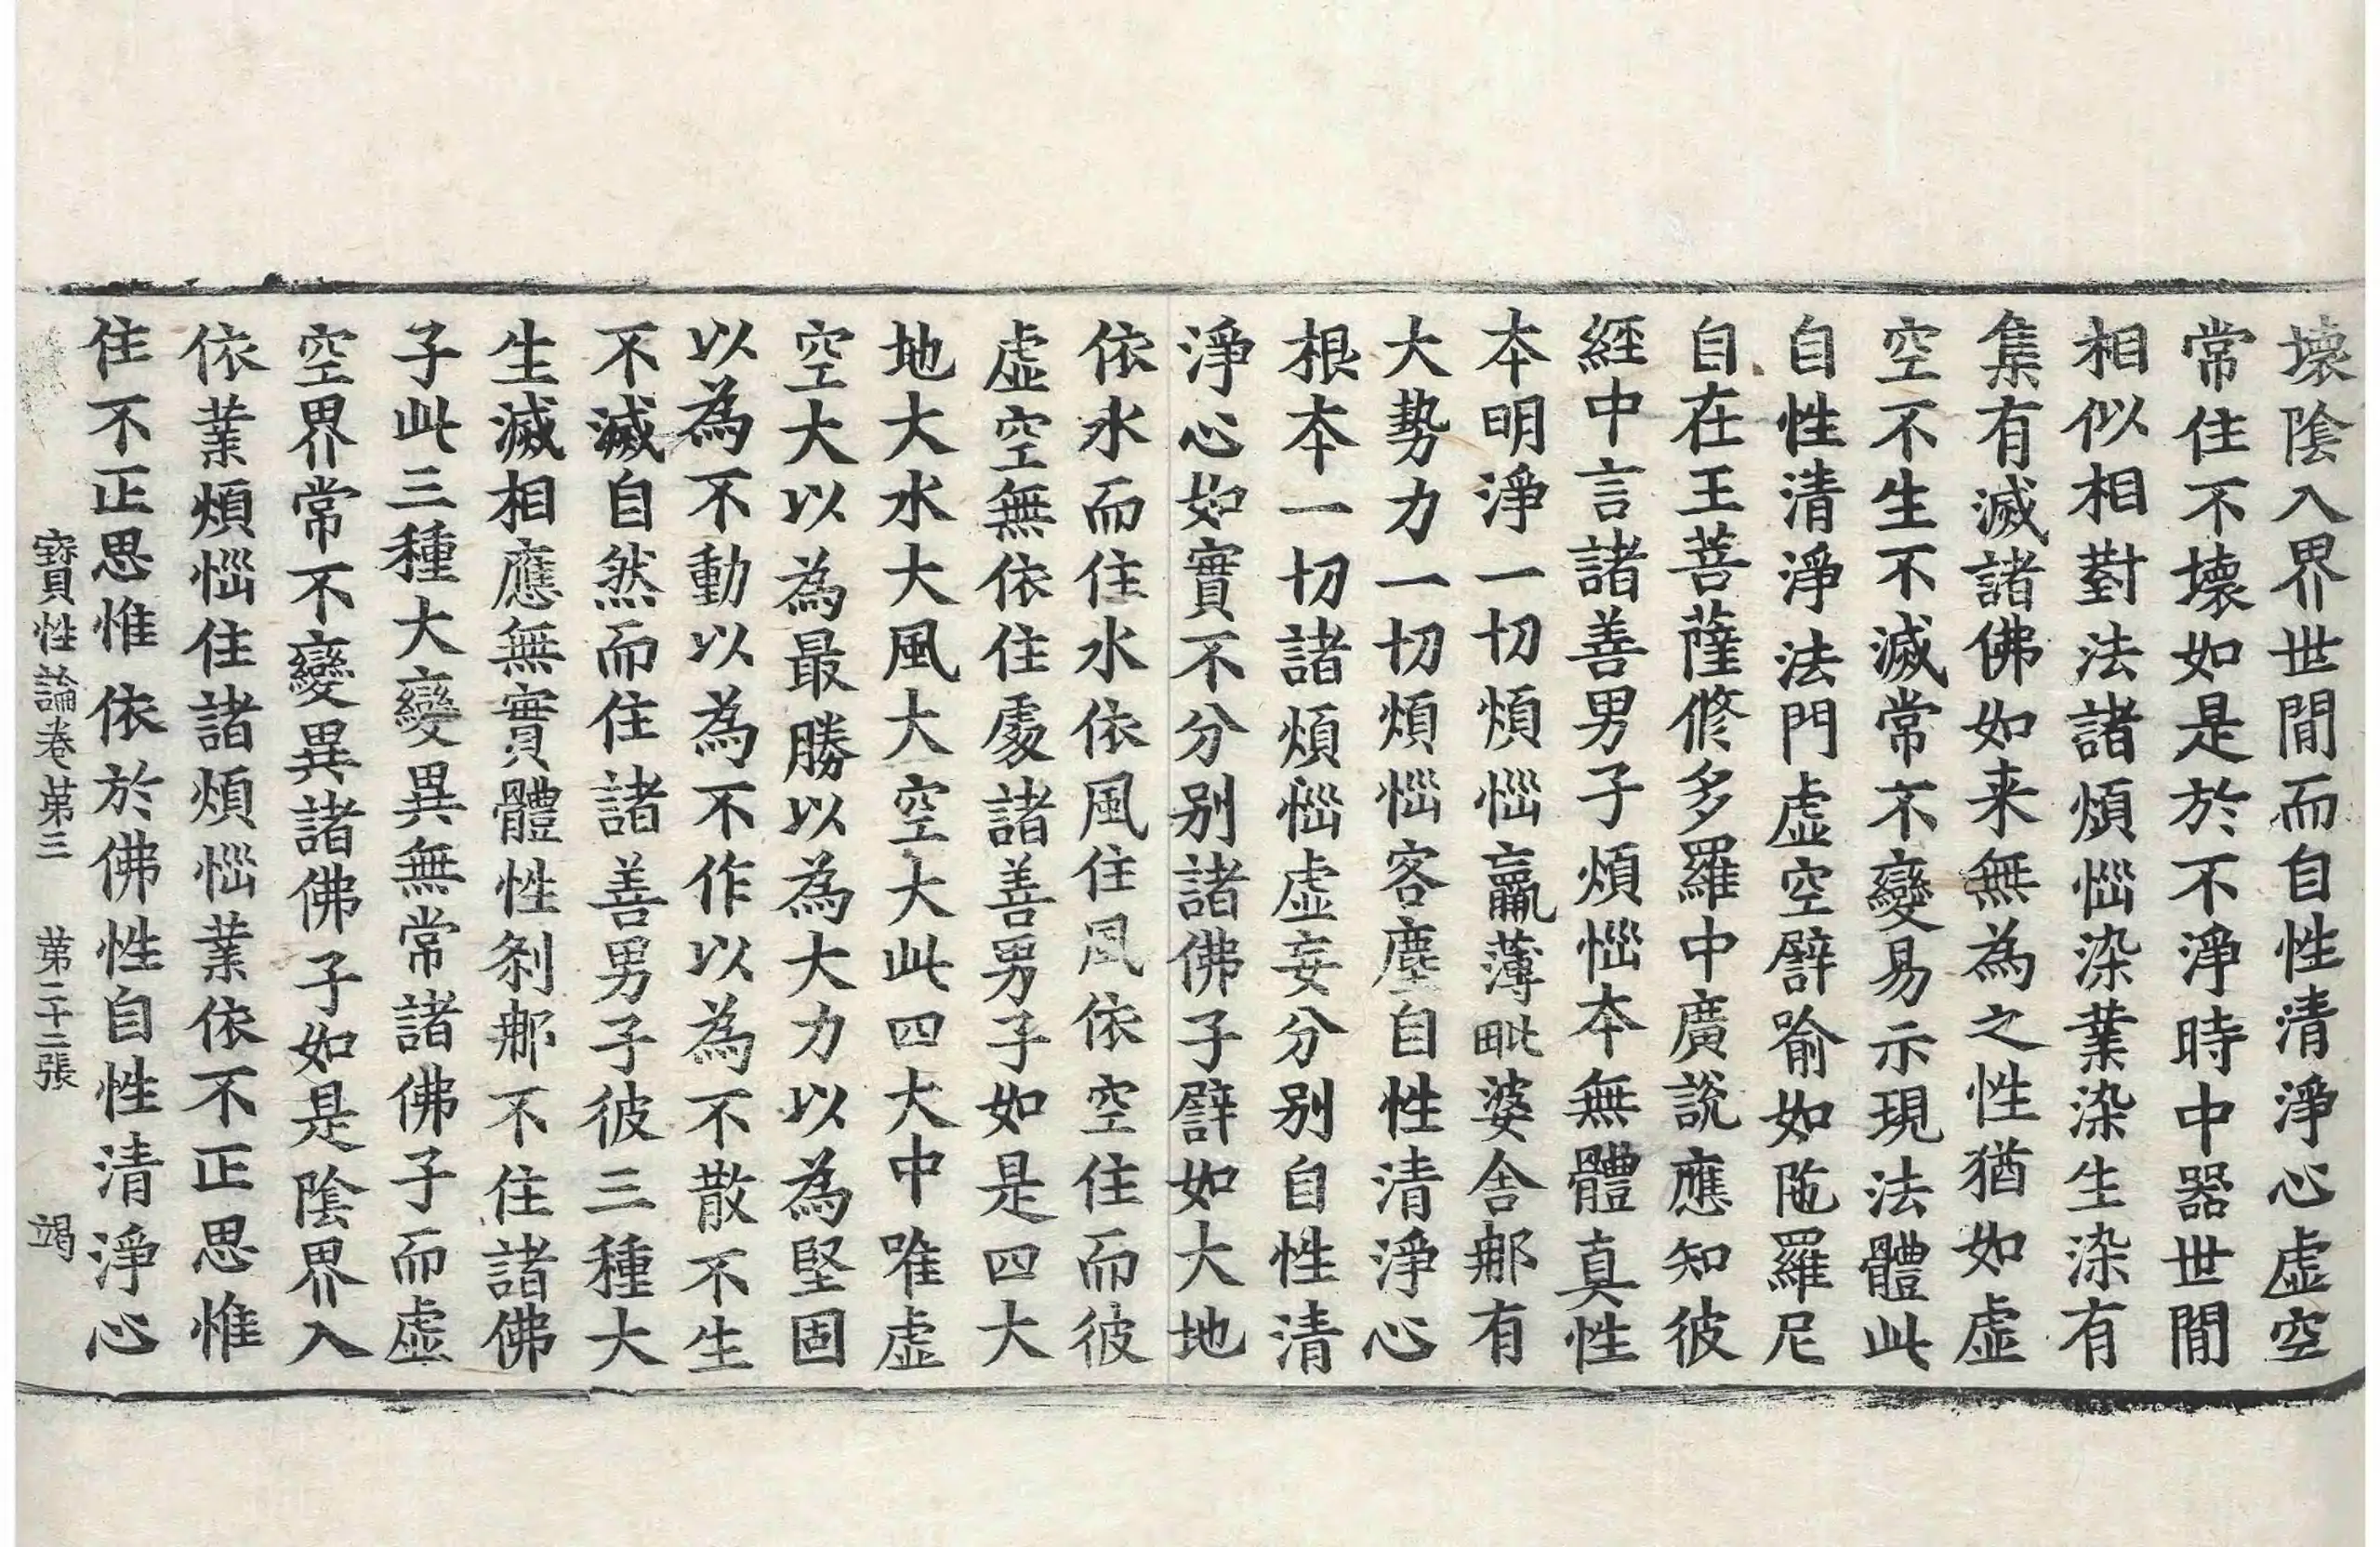 壞陰入界世間而自性清淨心虛空
常住不壞如是於不淨時中器世間
相似相對法諸煩惱染業染生染有
集有滅諸佛如来無為之性猶如虛
空不生不滅常不變易示現法體此
自性清淨法門虛空譬喻如陁羅尼
自在王菩薩修多羅中廣說應知彼
經中言諸善男子煩惱本無體真性
本明淨一切煩惱羸薄毗婆舍那有
大勢力一切煩惱客塵自性清淨心
根本一切諸煩惱虛妄分别自性清
淨心如實不分别諸佛子譬如大地
依水而住水依風住風依空住而彼
虛空無依住處諸善男子如是四大
地大水大風大空大此四大中唯虛
空大以為最勝以為大力以為堅固
以為不動以為不作以為不散不生
不滅自然而住諸善男子彼三種大
生滅相應無實體性刹那不住諸佛
子此三種大變異無常諸佛子而虛
空界常不變異諸佛子如是陰界入
依業煩惱住諸煩惱業依不正思惟
住不正思惟依於佛性自性清淨心
寶性論卷第三 第二十二張 竭